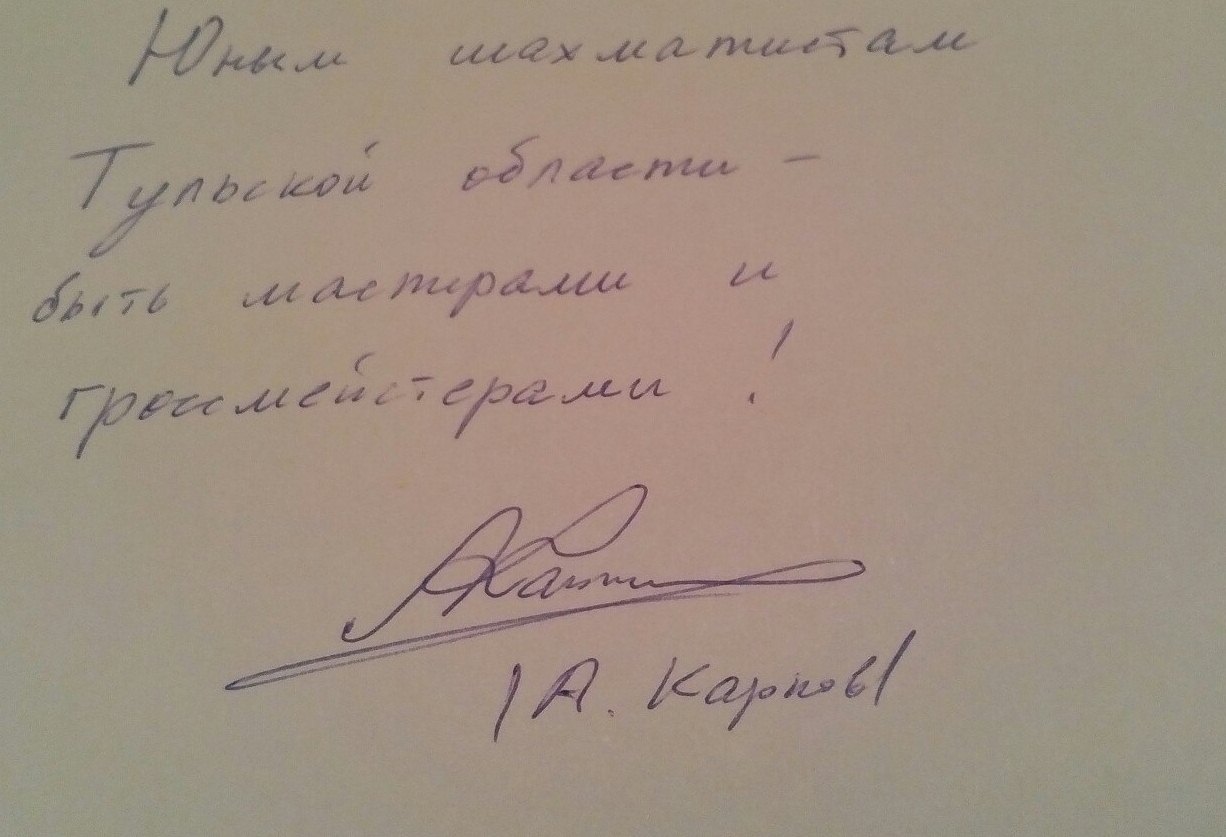 Юным шахматистам
Тульской области -
быть мастерами и
гроссмейстерами!
АКарпов
/А. Карпов/